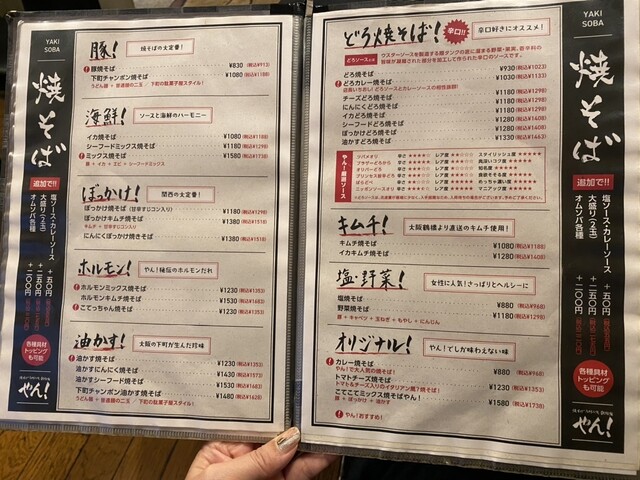 YAKI
SOBA
焼そば
追加で!!
塩ソース・カレーソース +五〇円
大盛り(2玉) +二五〇円
オムソバ各種 +二〇〇円
各種具材
トッピング
も可能
やん!
豚!
焼そばの大定番!
豚焼そば ¥830 (税込¥913)
下町チャンポン焼そば ¥1080 (税込¥1188)
海鮮!
ソースと海鮮のハーモニー
イカ焼そば ¥1080 (税込¥1188)
シーフードミックス焼そば ¥1480 (税込¥1628)
ミックス焼そば ¥1580 (税込¥1738)
豚+イカ+エビ+シーフードミックス
ぼっかけ!
関西の大定番!
ぼっかけ焼そば(甘辛すじコン入り) ¥1180 (税込¥1298)
ぼっかけキムチ焼そば ¥1380 (税込¥1518)
キムチ+甘辛すじコン入り
にんにくぼっかけ焼きそば ¥1380 (税込¥1518)
ホルモン!
やん!秘伝のホルモンだれ
ホルモンミックス焼そば ¥1230 (税込¥1353)
ホルモンキムチ焼そば ¥1530 (税込¥1683)
こてっちゃん焼そば ¥1230 (税込¥1353)
油かす!
大阪の下町が生んだ珍味
油かす焼そば ¥1230 (税込¥1353)
油かすにんにく焼そば ¥1430 (税込¥1573)
油かすシーフード焼そば ¥1530 (税込¥1683)
下町チャンポン油かす焼そば ¥1480 (税込¥1628)
どろ焼そば!
辛口!!
辛口好きにオススメ!
どろソースとは
ウスターソースを製造する際タンクの底に溜まる野菜・果実、香辛料の
旨味が凝縮された部分を加工して作られた辛口のソースです。
どろ焼そば ¥930 (税込¥1023)
どろカレー焼そば ¥1030 (税込¥1133)
店長いち おし!どろソースとカレーソースの相性抜群!
チーズどろ焼そば ¥1180 (税込¥1298)
にんにくどろ焼そば ¥1180 (税込¥1298)
イカどろ焼そば ¥1180 (税込¥1298)
シーフードどろ焼そば ¥1480 (税込¥1628)
ぼっかけどろ焼そば ¥1280 (税込¥1408)
油かすどろ焼そば ¥1330 (税込¥1463)
やん!厳選ソース
キムチ!
大阪鶴橋より直送のキムチ使用!
キムチ焼そば ¥1080 (税込¥1188)
イカキムチ焼そば ¥1280 (税込¥1408)
塩・野菜!
女性に人気!さっぱりとヘルシーに
塩焼そば ¥880 (税込¥968)
野菜焼そば ¥1180 (税込¥1298)
豚+キャベツ+玉ねぎ+もやし+にんじん
オリジナル!
やん!でしか味わえない味
カレー焼そば ¥880 (税込¥968)
やん!で大人気の焼そば!
トマトチーズ焼そば ¥1230 (税込¥1353)
トマト&チーズ入りのイタリアン風?焼そば!
こてこてミックス焼そばやん! ¥1580 (税込¥1738)
豚+ぼっかけ+油かす
やん!おすすめ!
YAKI
SOBA
焼そば
追加で!!
塩ソース・カレーソース +五〇円
大盛り(2玉) +二五〇円
オムソバ各種 +二〇〇円
各種具材
トッピング
も可能
やん!